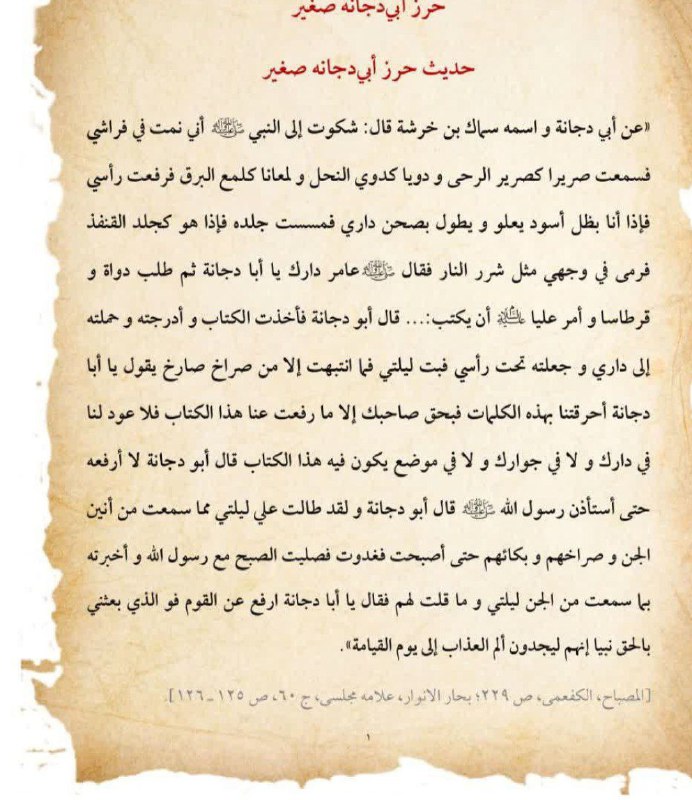 حرز أبي‌دجانه صغير
حديث حرز أبي‌دجانه صغير
«عن أبي دجانة و اسمه سماك بن خرشة قال: شكوت إلى النبي ﷺ أني نمت في فراشي
فسمعت صريرا كصرير الرحى و دويا كدوي النحل و لمعانا كلمع البرق فرفعت رأسي
فإذا أنا بظل أسود يعلو و يطول بصحن داري فمسست جلده فإذا هو كجلد القنفذ
فرمى في وجهي مثل شرر النار فقال ﷺ عامر دارك يا أبا دجانة ثم طلب دواة و
قرطاسا و أمر عليا عليه السلام أن يكتب:... قال أبو دجانة فأخذت الكتاب و أدرجته و حملته
إلى داري و جعلته تحت رأسي فبت ليلتي فما انتبهت إلا من صراخ صارخ يقول يا أبا
دجانة أحرقتنا بهذه الكلمات فبحق صاحبك إلا ما رفعت عنا هذا الكتاب فلا عود لنا
في دارك و لا في جوارك و لا في موضع يكون فيه هذا الكتاب قال أبو دجانة لا أرفعه
حتى أستأذن رسول الله ﷺ قال أبو دجانة و لقد طالت علي ليلتي مما سمعت من أنين
الجن و صراخهم و بكائهم حتى أصبحت فغدوت فصليت الصبح مع رسول الله و أخبرته
بما سمعت من الجن ليلتي و ما قلت لهم فقال يا أبا دجانة ارفع عن القوم فو الذي بعثني
بالحق نبيا إنهم ليجدون ألم العذاب إلى يوم القيامة».
[المصباح، الكفعمى، ص ٢٢٩؛ بحار الانوار، علامه مجلسى، ج ٦٠، ص ١٢٥ ـ ١٢٦].
١